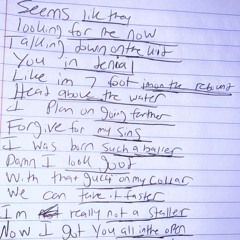 Seems like they
looking for me now
Talking down on the unit
You in denial
Like im 7 foot imon the rebound
Head above the water
I Plan on going farther
Forgive for my sins
I was born such a baller
Damn I look good
With that gucci on my collar
We can take it faster
I'm really not a staller
Now I got you all in the open